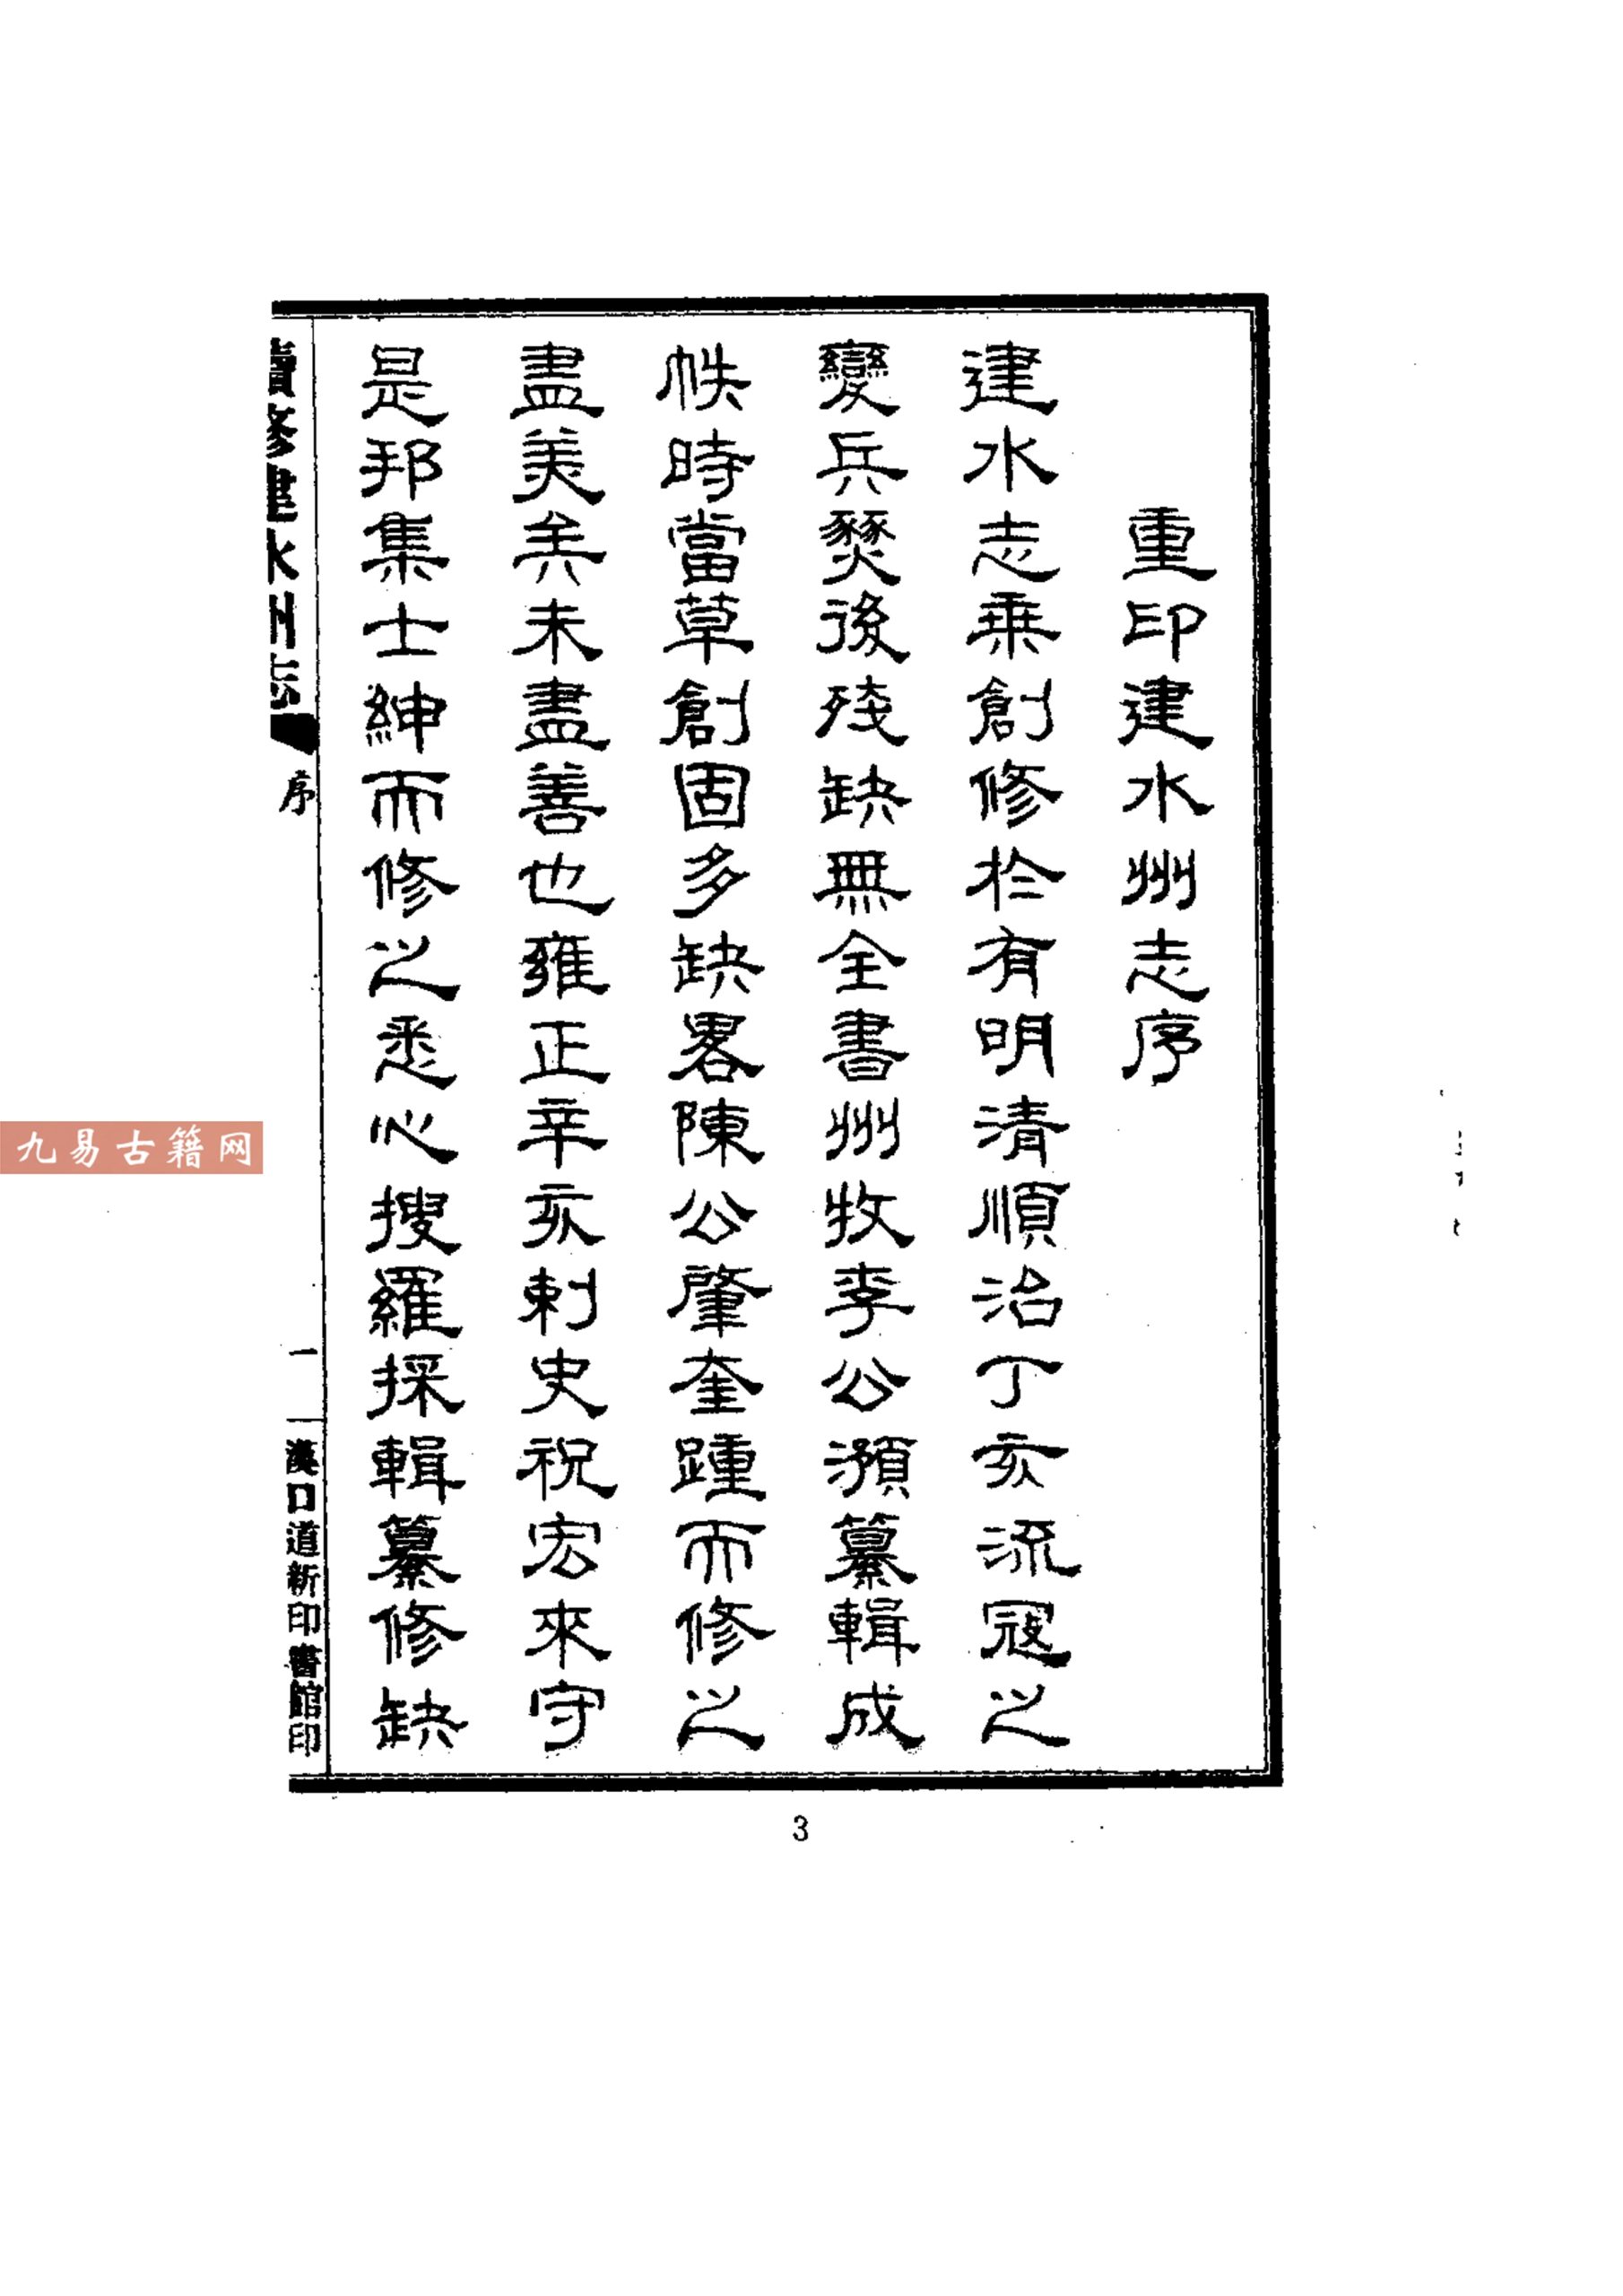 重印建水州志序
建水志乘創修於有明清順治丁亥流冦之
變兵燹後殘缺無全書州牧李公瀕纂輯成
帙時當草創固多缺畧陳公肇奎踵而修之
盡美矣未盡善也雍正辛亥刺史祝宏來守
是邦集士紳而修之悉心搜羅採輯纂修缺
續修建水州志
序
一
漢口道新印書館印
九易古籍网
3